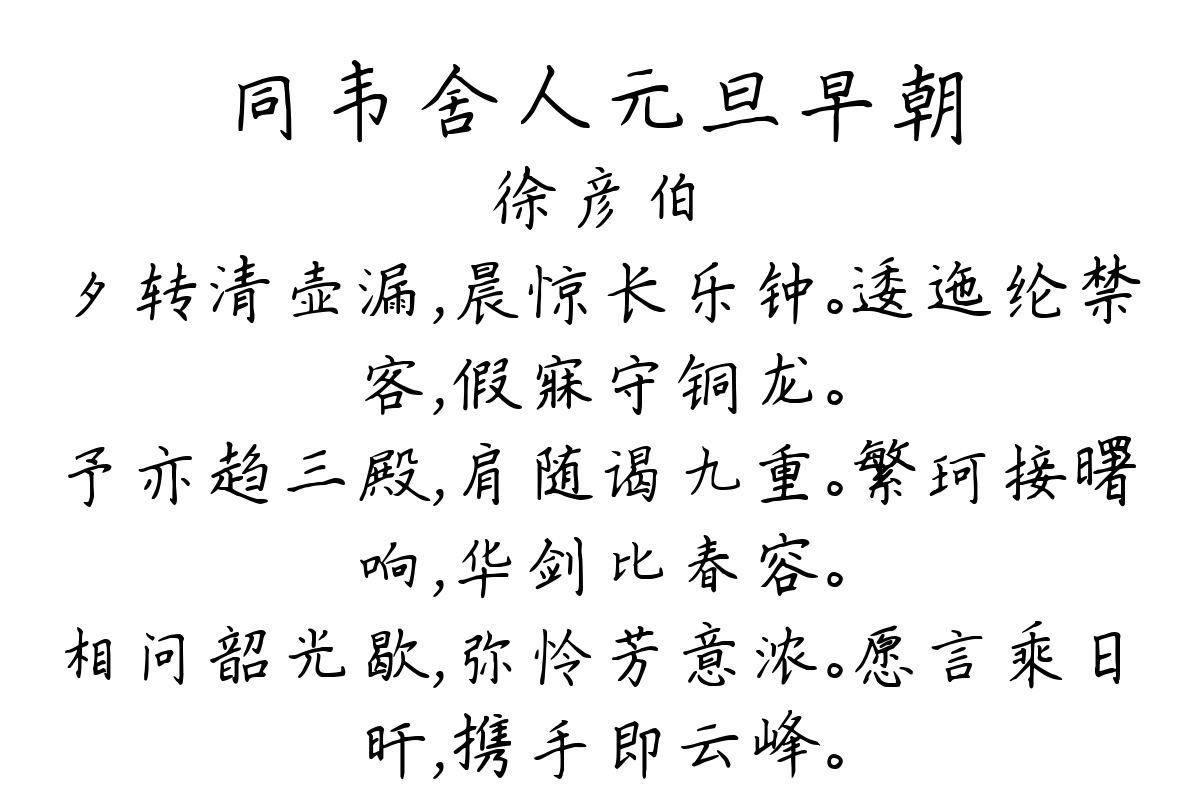 同韦舍人元旦早朝
徐彦伯
夕转清壶漏,晨惊长乐钟。逶迤纶禁
客,假寐守铜龙。
予亦趋三殿,肩随谒九重。繁珂接曙
响,华剑比春容。
相问韶光歇,弥怜芳意浓。愿言乘日
旰,携手即云峰。